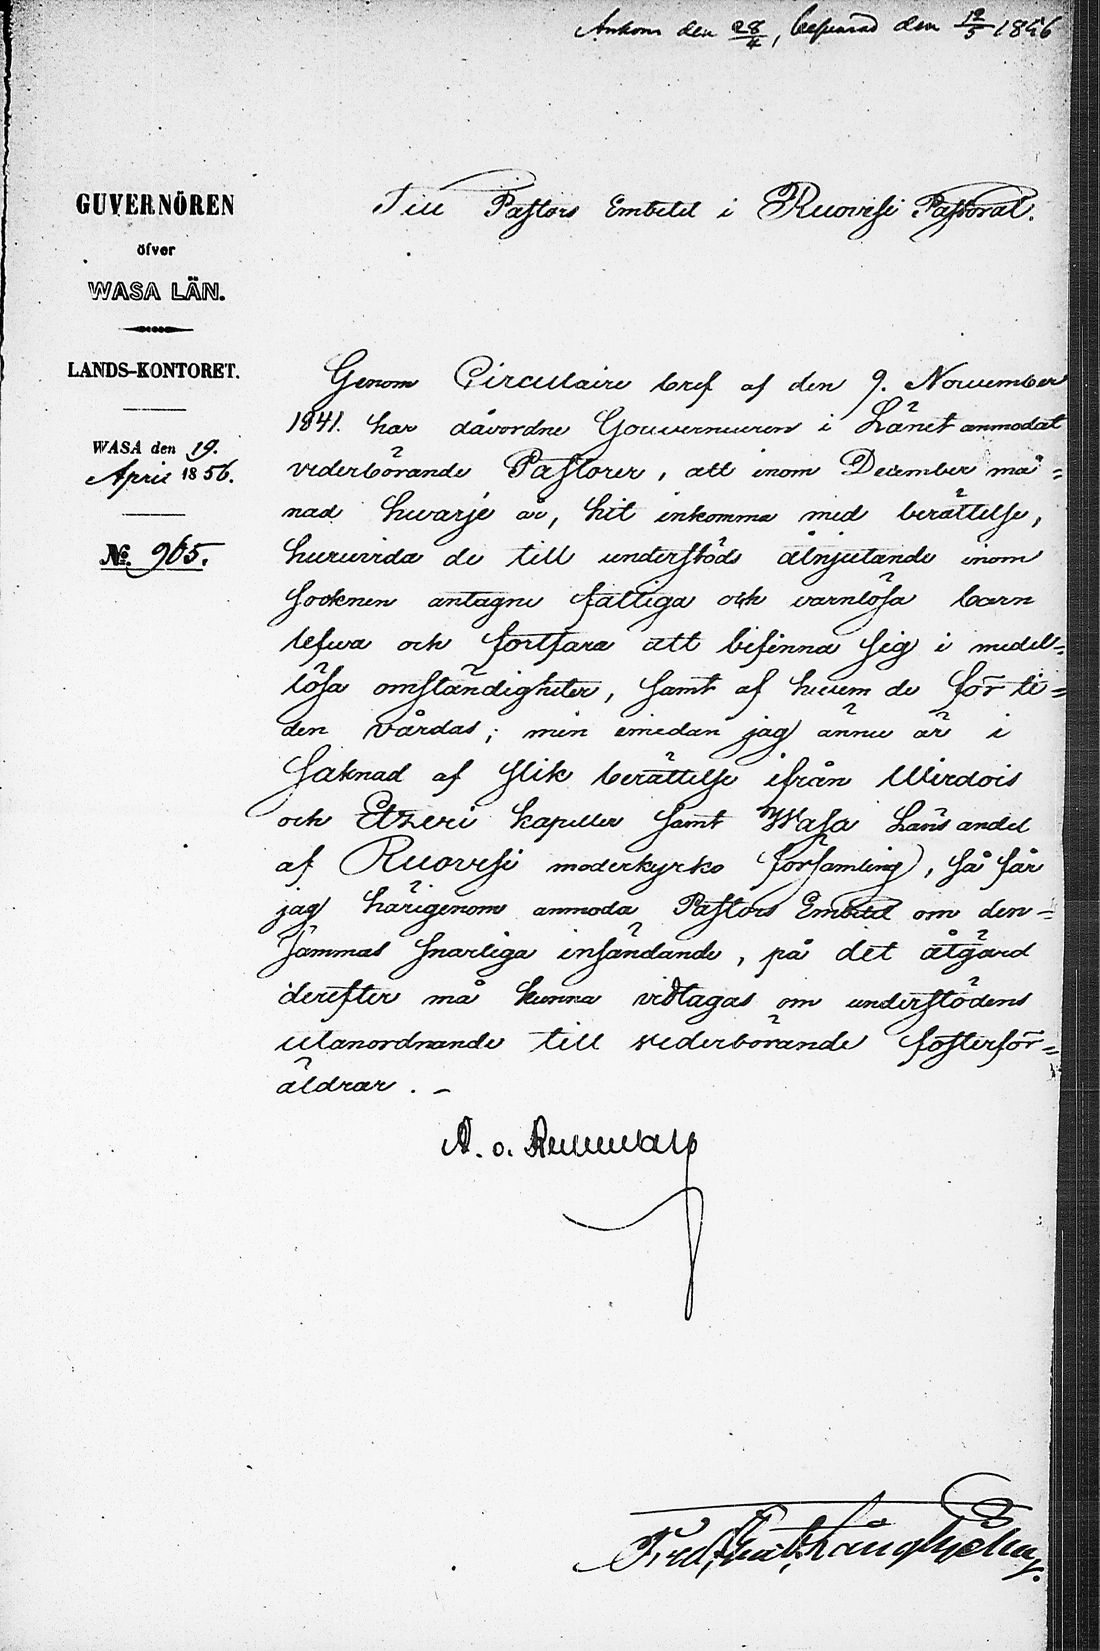 Ankom den 28/4, besvarad den 12/5 1856
GUVERNÖREN
öfver
WASA LÄN.
LANDS-KONTORET.
WASA den 19.
April 1856.
No. 965.
Till Pastors Embetet i Ruovesi Pastorat.
Genom Circulaire bref af den 9. November
1841. har dåvordne Gouverneuren i Länet anmodat
vederbörande Pastorer, att inom December må=
nad hwarje år, hit inkomma med berättelse,
huruvida de till understöds åtnjutande inom
socknen antagne fattiga och värnlösa barn
lefwa och fortfara att befinna sig i medel=
lösa omständigheter, samt af hwem de för ti=
den vårdas; men emedan jag ännu är i
saknad af slik berättelse ifrån Wirdois
och Etzeri kapeller samt Wasa Läns andel
af Ruovesi moderkyrko församling, så får
jag härigenom anmoda Pastors Embetet om den=
sammas snarliga insändande, på det åtgärd
derefter må kunna vidtagas om understödens
utanordnande till vederbörande fosterför=
äldrar. –